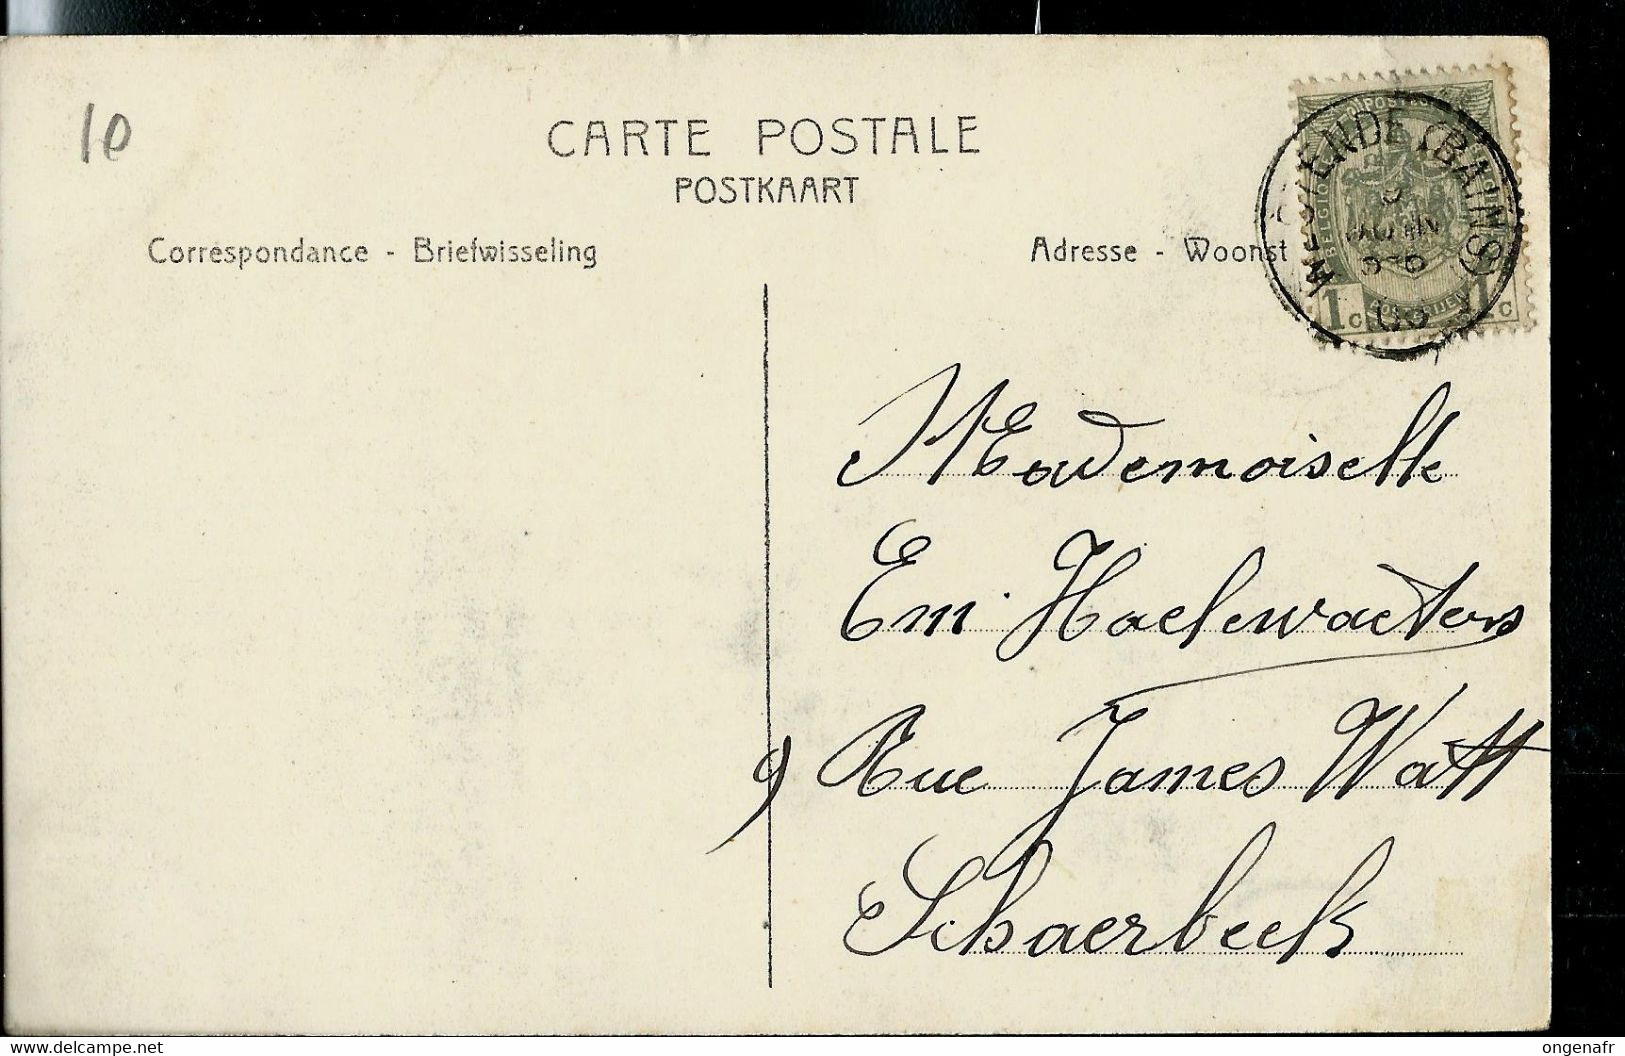 10
CARTE POSTALE
POSTKAART
Correspondance - Briefwisseling
Adresse - Woonst
WESTENDE (BAINS)
JUIN
BELGIQUE
1c 1c
Mademoiselle
Em. Haelewaeters
9 Rue James Watt
Schaerbeek
www.delcampe.net
ongenafr